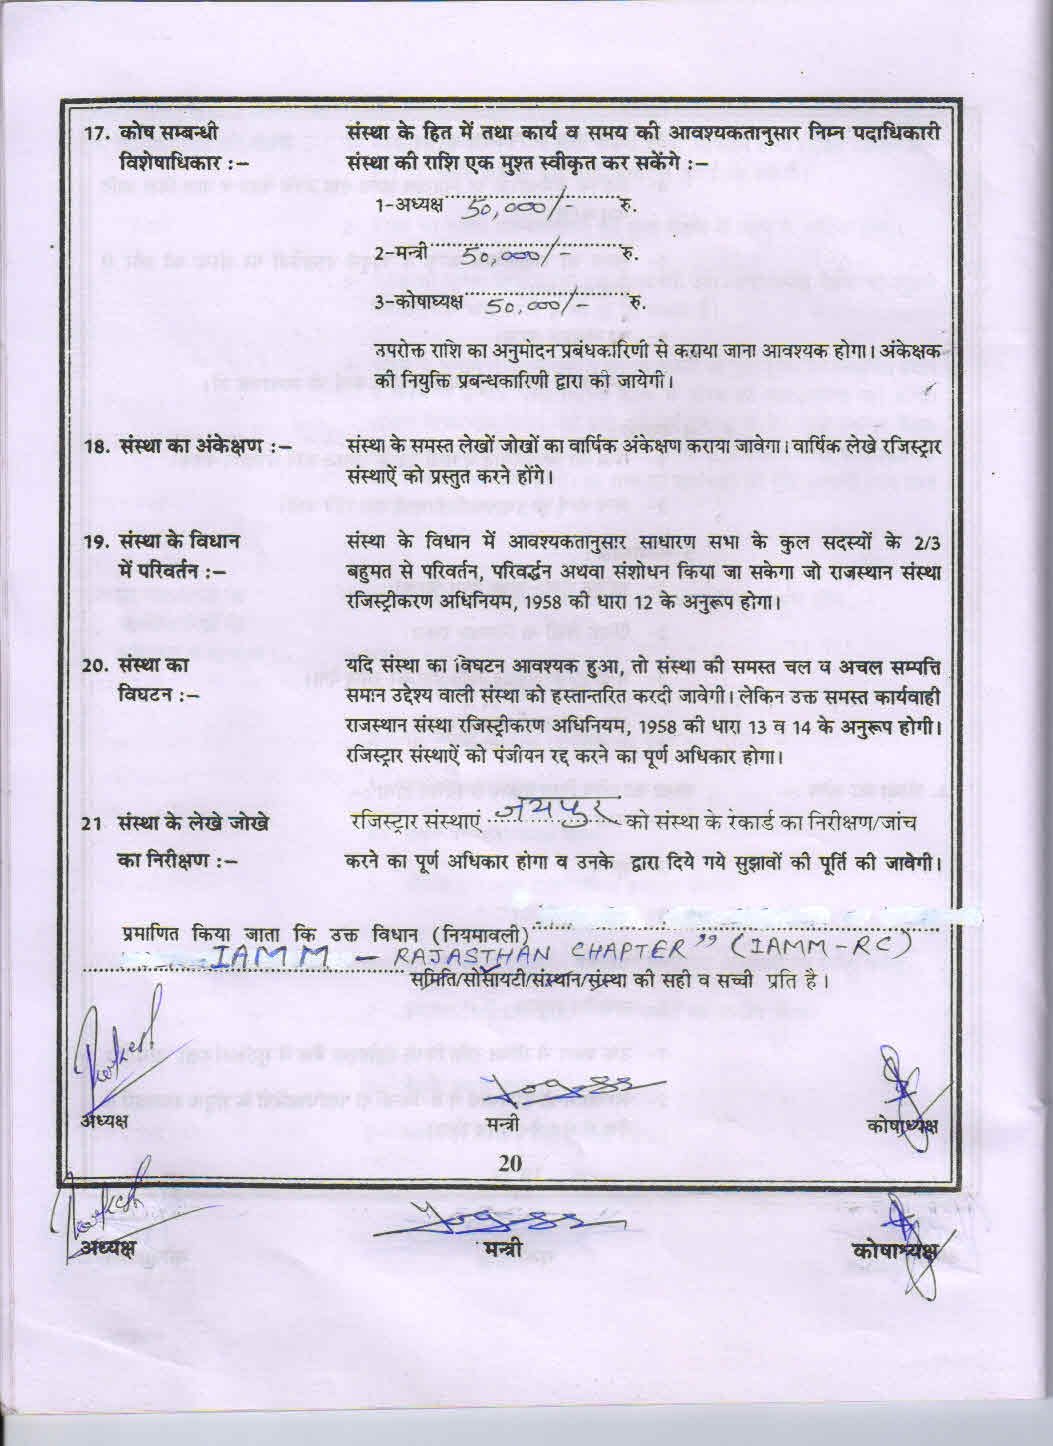 17. कोष सम्बन्धी संस्था के हित में तथा कार्य व समय की आवश्यकतानुसार निम्न पदाधिकारी
विशेषाधिकार :– संस्था की राशि एक मुश्त स्वीकृत कर सकेंगे :–
1-अध्यक्ष 50,000/- रु.
2-मन्त्री 50,000/- रु.
3-कोषाध्यक्ष 50,000/- रु.
उपरोक्त राशि का अनुमोदन प्रबंधकारिणी से कराया जाना आवश्यक होगा। अंकेक्षक
की नियुक्ति प्रबन्धकारिणी द्वारा की जायेगी।
18. संस्था का अंकेक्षण :– संस्था के समस्त लेखों जोखों का वार्षिक अंकेक्षण कराया जावेगा। वार्षिक लेखे रजिस्ट्रार
संस्थाऐं को प्रस्तुत करने होंगे।
19. संस्था के विधान संस्था के विधान में आवश्यकतानुसार साधारण सभा के कुल सदस्यों के 2/3
में परिवर्तन :– बहुमत से परिवर्तन, परिवर्द्धन अथवा संशोधन किया जा सकेगा जो राजस्थान संस्था
रजिस्ट्रीकरण अधिनियम, 1958 की धारा 12 के अनुरूप होगा।
20. संस्था का यदि संस्था का विघटन आवश्यक हुआ, तो संस्था की समस्त चल व अचल सम्पत्ति
विघटन :– समान उद्देश्य वाली संस्था को हस्तान्तरित करदी जावेगी। लेकिन उक्त समस्त कार्यवाही
राजस्थान संस्था रजिस्ट्रीकरण अधिनियम, 1958 की धारा 13 व 14 के अनुरूप होगी।
रजिस्ट्रार संस्थाऐं को पंजीयन रद्द करने का पूर्ण अधिकार होगा।
21 संस्था के लेखे जोखे रजिस्ट्रार संस्थाएं जयपुर को संस्था के रेकार्ड का निरीक्षण/जांच
का निरीक्षण :– करने का पूर्ण अधिकार होगा व उनके द्वारा दिये गये सुझावों की पूर्ति की जावेगी।
प्रमाणित किया जाता कि उक्त विधान (नियमावली)
IAMM – RAJASTHAN CHAPTER" (IAMM-RC)
समिति/सोसायटी/संस्थान/संस्था की सही व सच्ची प्रति है।
अध्यक्ष मन्त्री कोषाध्यक्ष
20
अध्यक्ष मन्त्री कोषाध्यक्ष